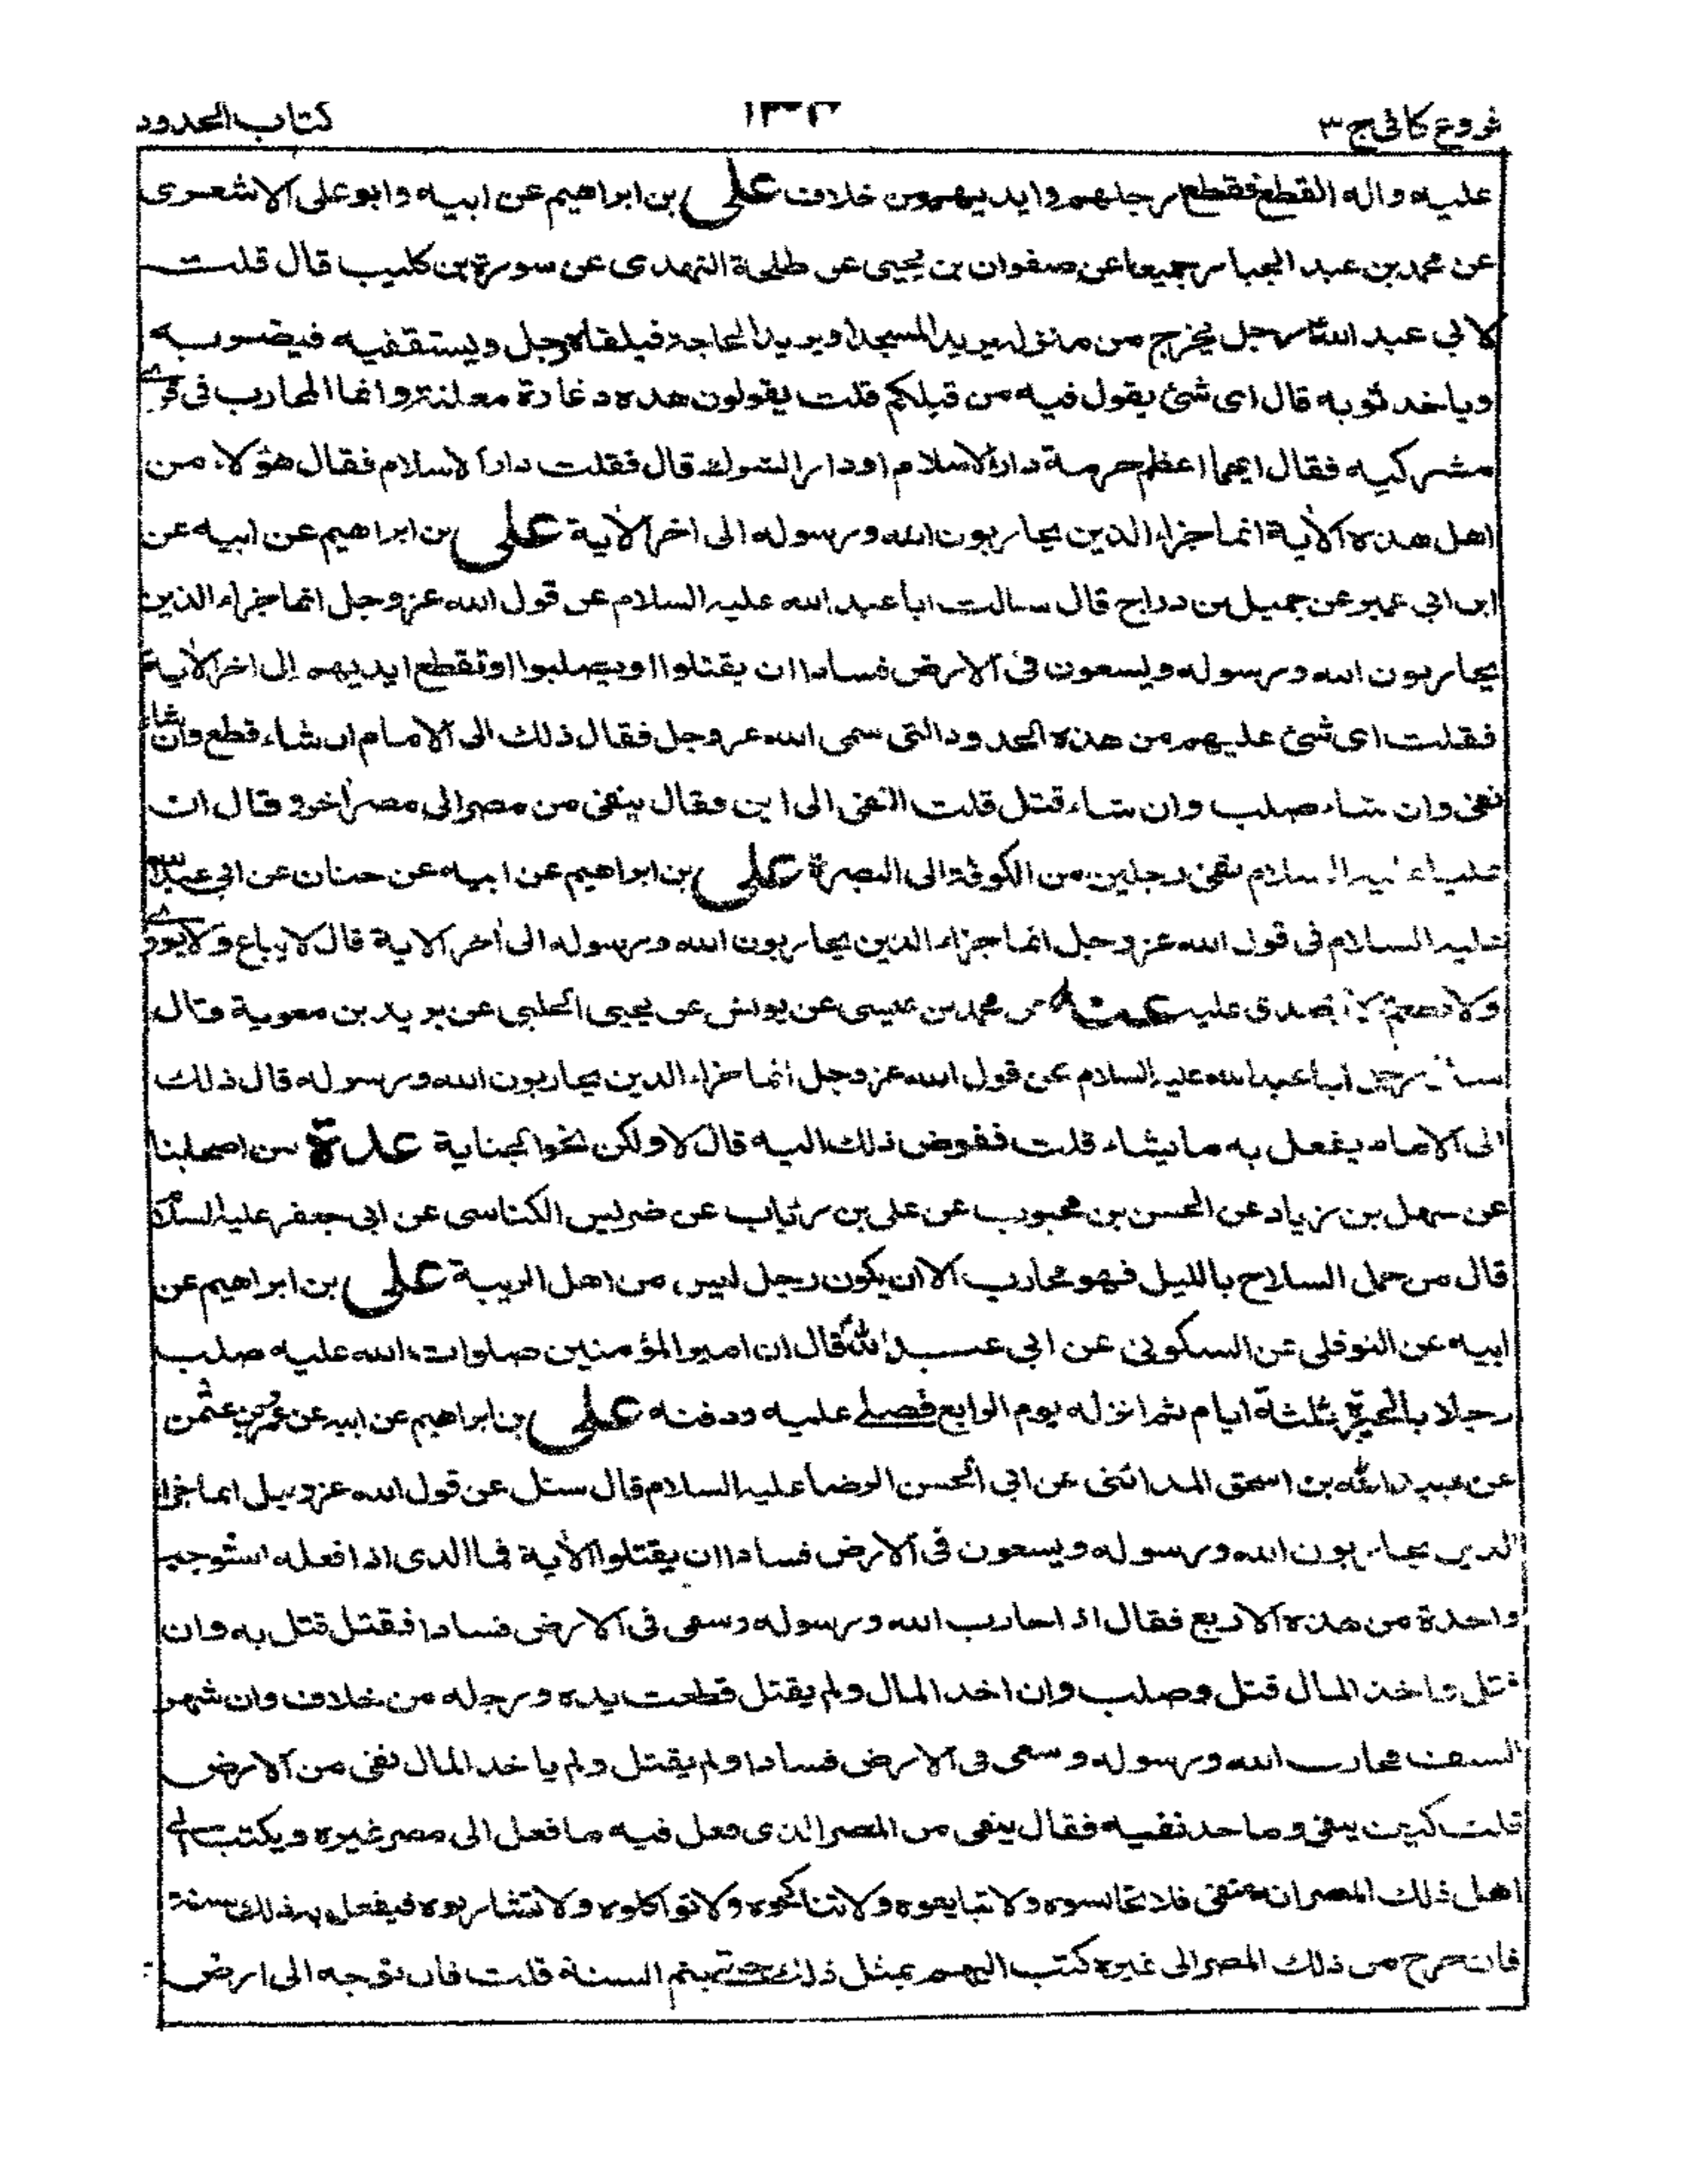 فروع كافى ج ٣
كتاب الحدود
عليه واله القطع فقطع ارجلهم وايديهم من خلاف على بن ابراهيم عن ابيه وابو على الاشعرى
عن محمد بن عبد الجبار جميعا عن صفوان بن يحيى عن طلحة النهدى عن سورة بن كليب قال قلت
لابي عبد الله رجل يخرج من منزله يريد المسجد او يريد الحاجة فيلقاه رجل ويستقفيه فيضربه
وياخذ ثوبه قال اى شئ يقول فيه من قبلكم قلت يقولون هذه دغارة معلنة وانما المحارب فى قرى
مشركيه فقال ايهما اعظم حرمة دار الاسلام او دار الشرك قال فقلت دار الاسلام فقال هؤلاء من
اهل هذه الاية انما جزاء الذين يحاربون الله ورسوله الى اخر الاية على بن ابراهيم عن ابيه عن
ابن ابي عمير عن جميل بن دراج قال سالت ابا عبد الله عليه السلام عن قول الله عز وجل انما جزاء الذين
يحاربون الله ورسوله ويسعون فى الارض فسادا ان يقتلوا او يصلبوا او تقطع ايديهم الى اخر الاية
فقلت اى شئ عليهم من هذه الحدود التى سمى الله عز وجل فقال ذلك الى الامام ان شاء قطع وان شاء
نفى وان شاء صلب وان شاء قتل قلت النفى الى اين فقال ينفى من مصر الى مصر اخر وقال ان
عليا عليه السلام نفى رجلين من الكوفة الى البصرة على بن ابراهيم عن ابيه عن حنان عن ابي عبد الله
عليه السلام فى قول الله عز وجل انما جزاء الذين يحاربون الله ورسوله الى اخر الاية قال لا يبايع ولا يووى
ولا يصدق عليه عنه عن محمد بن عيسى عن يونس عن يحيى الحلبي عن بريد بن معوية قال
سال رجل ابا عبد الله عليه السلام عن قول الله عز وجل انما جزاء الذين يحاربون الله ورسوله قال ذلك
الى الامام يفعل به ما يشاء قلت ففوض ذلك اليه قال لا ولكن نحو الجناية عدة من اصحابنا
عن سهل بن زياد عن الحسن بن محبوب عن على بن رئاب عن ضريس الكناسى عن ابى جعفر عليه السلام
قال من حمل السلاح بالليل فهو محارب الا ان يكون رجل ليس من اهل الريبة على بن ابراهيم عن
ابيه عن النوفلى عن السكونى عن ابي عبد الله قال ان امير المؤمنين صلوات الله عليه صلب
رجلا بالحيرة ثلثة ايام ثم انزله يوم الرابع فصلى عليه ودفنه على بن ابراهيم عن ابيه عن عمرو بن عثمن
عن عبيد الله بن اسحق المدائنى عن ابي الحسن الرضا عليه السلام قال سئل عن قول الله عز وجل انما جزاء
الذين يحاربون الله ورسوله ويسعون فى الارض فسادا ان يقتلوا الاية فما الذى اذا فعله استوجب
واحدة من هذه الاربع فقال اذا حارب الله ورسوله وسعى فى الارض فسادا فقتل قتل به وان
قتل واخذ المال قتل وصلب وان اخذ المال ولم يقتل قطعت يده ورجله من خلاف وان شهر
السيف محارب الله ورسوله وسعى فى الارض فسادا ولم يقتل ولم ياخذ المال نفى من الارض
قلت كيف ينفى وما حد نفيه فقال ينفى من المصر الذى فعل فيه ما فعل الى مصر غيره ويكتب الى
اهل ذلك المصر انه منفى فلا تجالسوه ولا تبايعوه ولا تناكحوه ولا تواكلوه ولا تشاربوه فيفعل به ذلك سنة
فان خرج من ذلك المصر الى غيره كتب اليهم بمثل ذلك حتى يتم السنة قلت فان توجه الى ارض